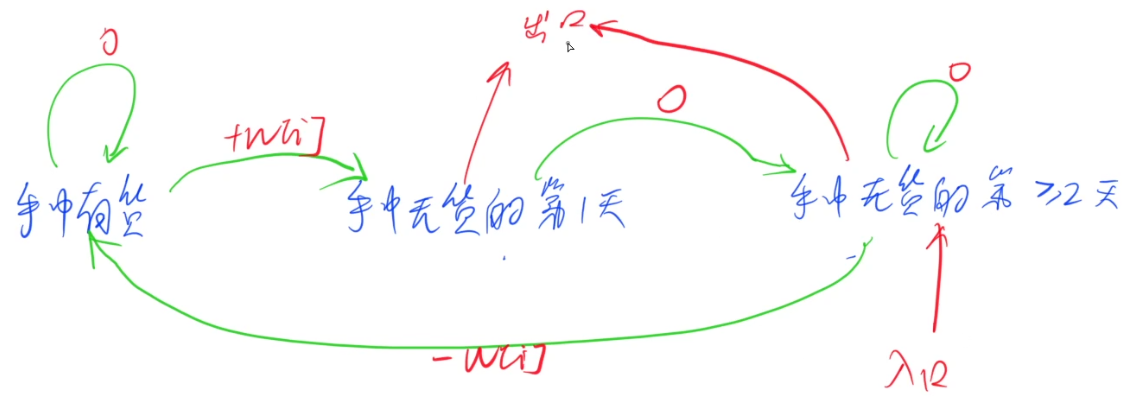 出口
0
0
0
+w[i]
手中有货
手中无货的第1天
手中无货的第≥2天
-w[i]
入口